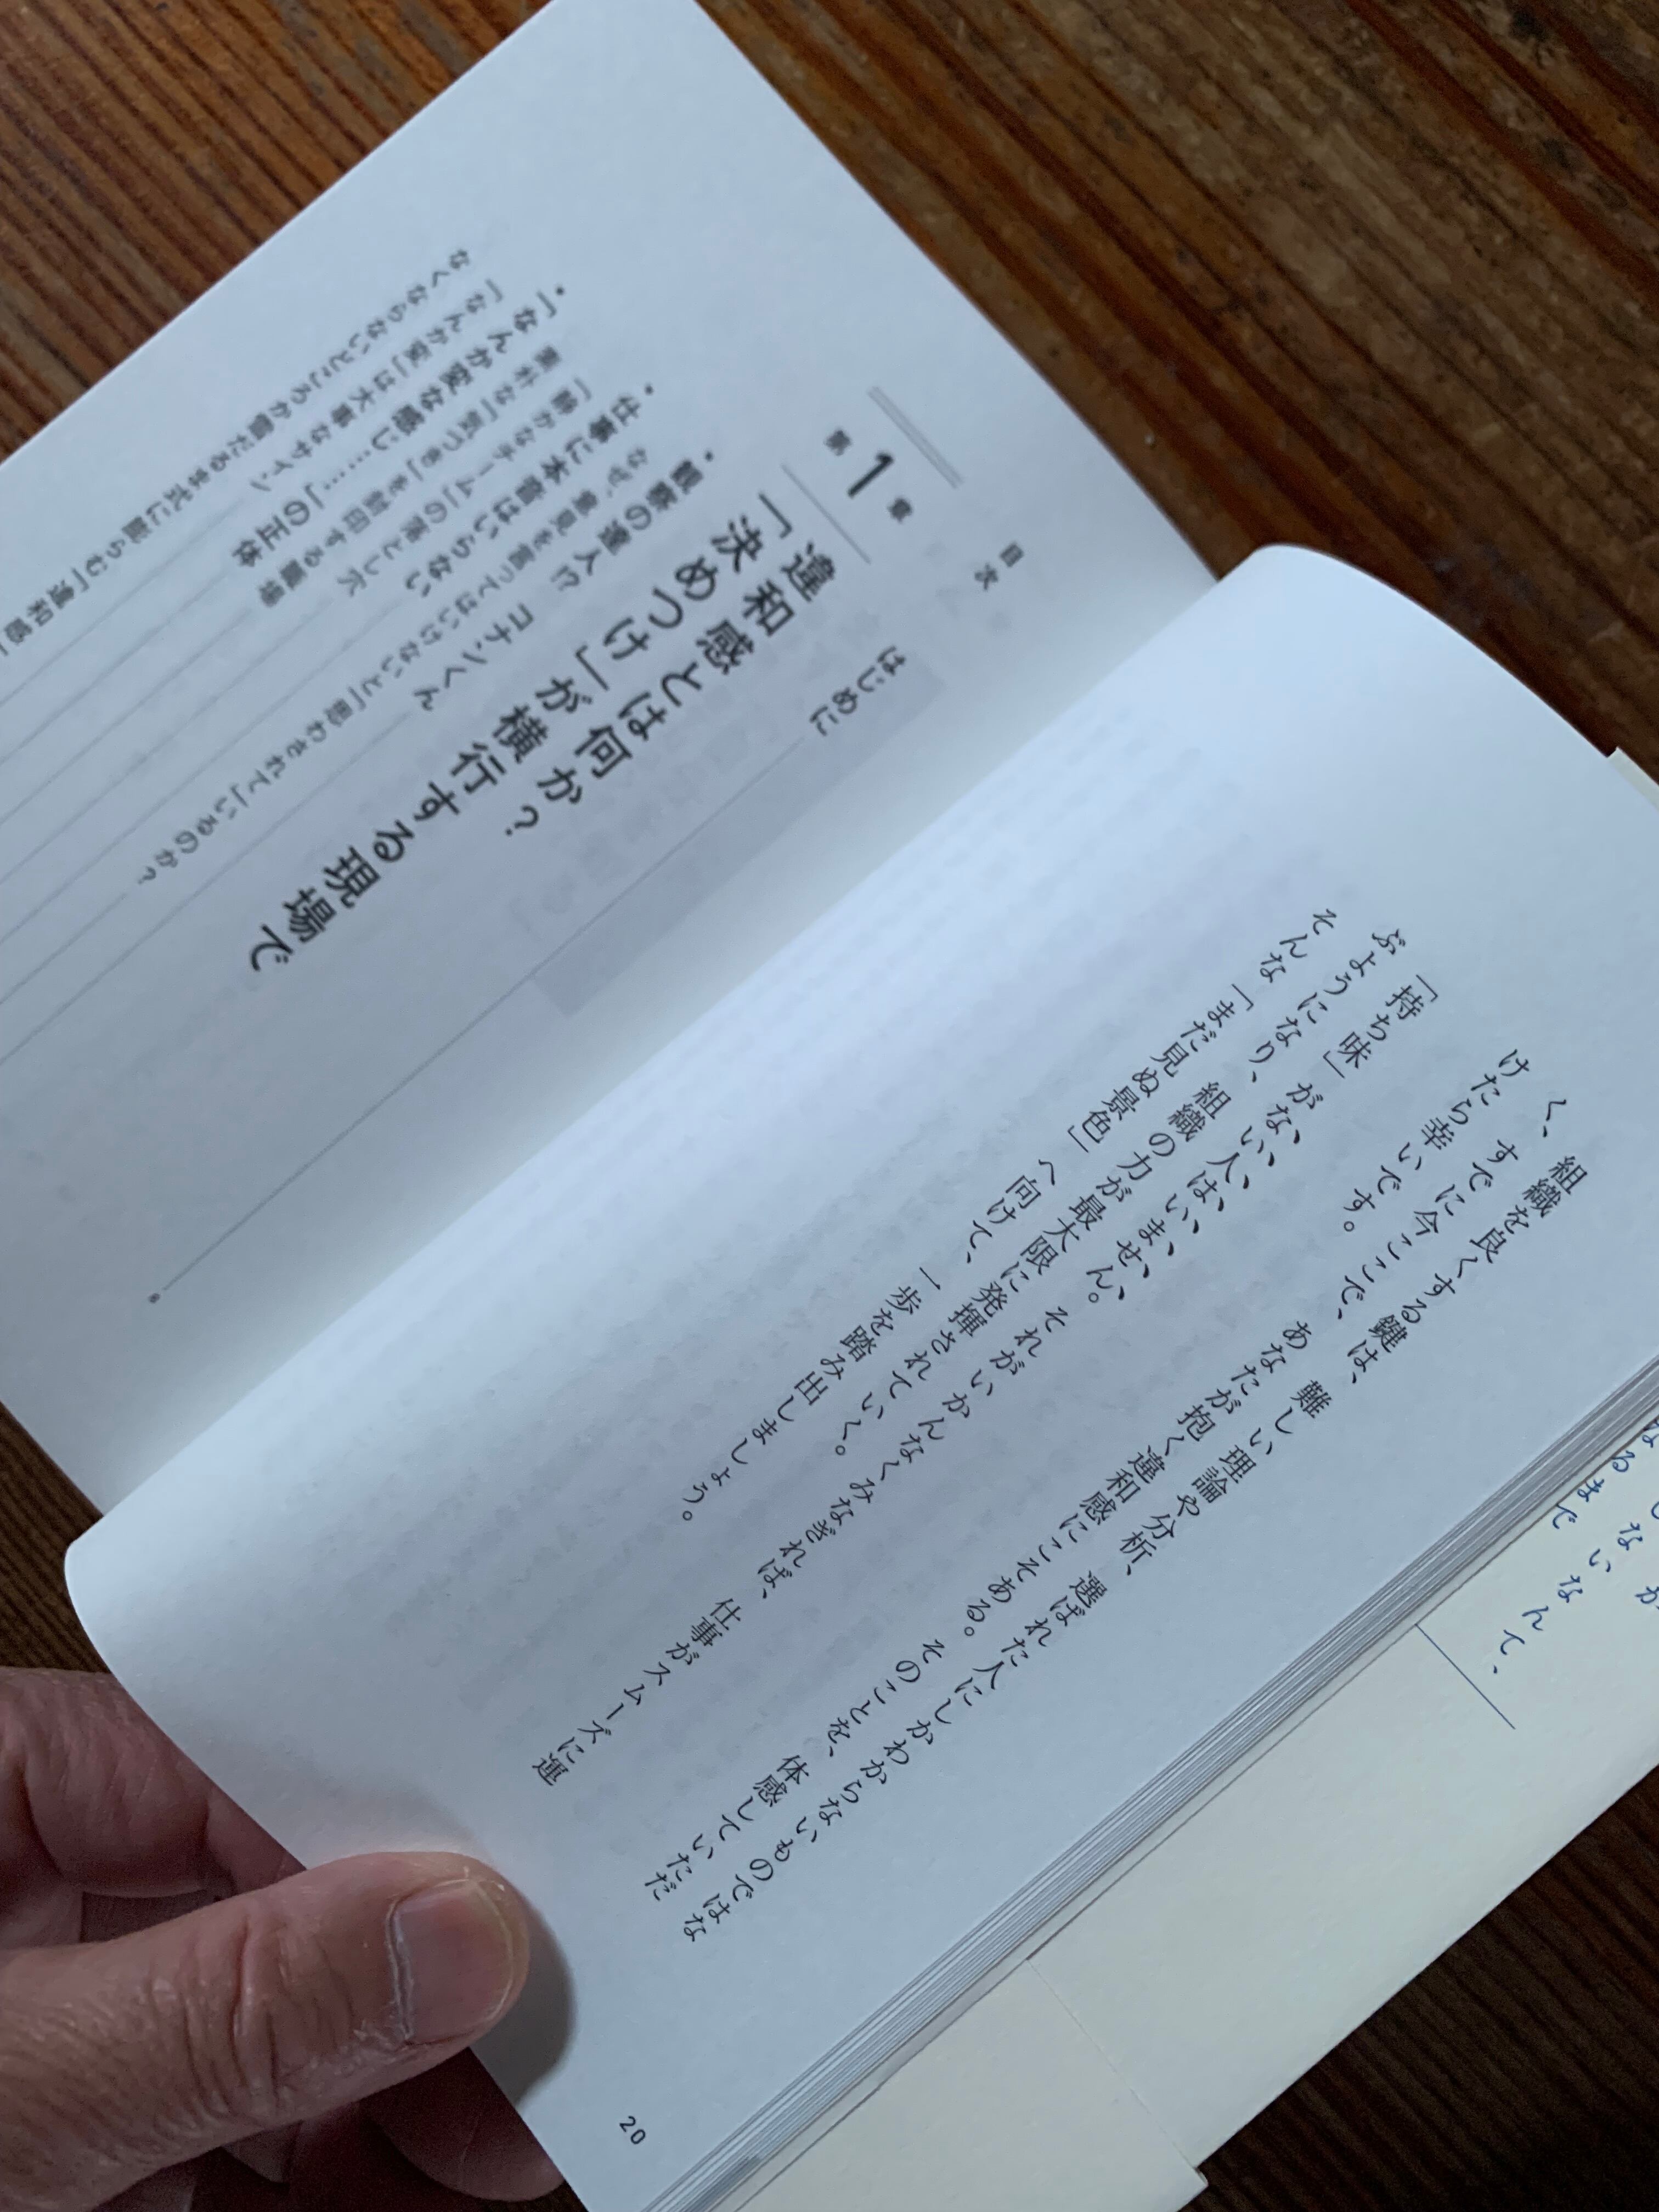 組織を良くする鍵は、難しい理論や分析、選ばれた人にしかわからないものではな
く、すでに今ここで、あなたが抱く違和感にこそある。そのことを、体感していただ
けたら幸いです。
「持ち味」がない人はいません。それがいかんなくみなぎれば、仕事がスムーズに運
ぶようになり、組織の力が最大限に発揮されていく。
そんな「まだ見ぬ景色」へ向けて、一歩を踏み出しましょう。
20
目次
はじめに
第1章
違和感とは何か?
「決めつけ」が横行する現場で
・観察の達人!? コナンくん
なぜ、意見を言ってはいけないと「思わされて」いるのか?
・仕事に本音はいらない
「静かなチーム」の落とし穴
素朴な「気づき」を封印する職場
・「なんか変な感じ……」の正体
「なんか変」は大事なサイン
なくならないどころか雪だるま式に膨らむ「違和感」
るまでいなんて、